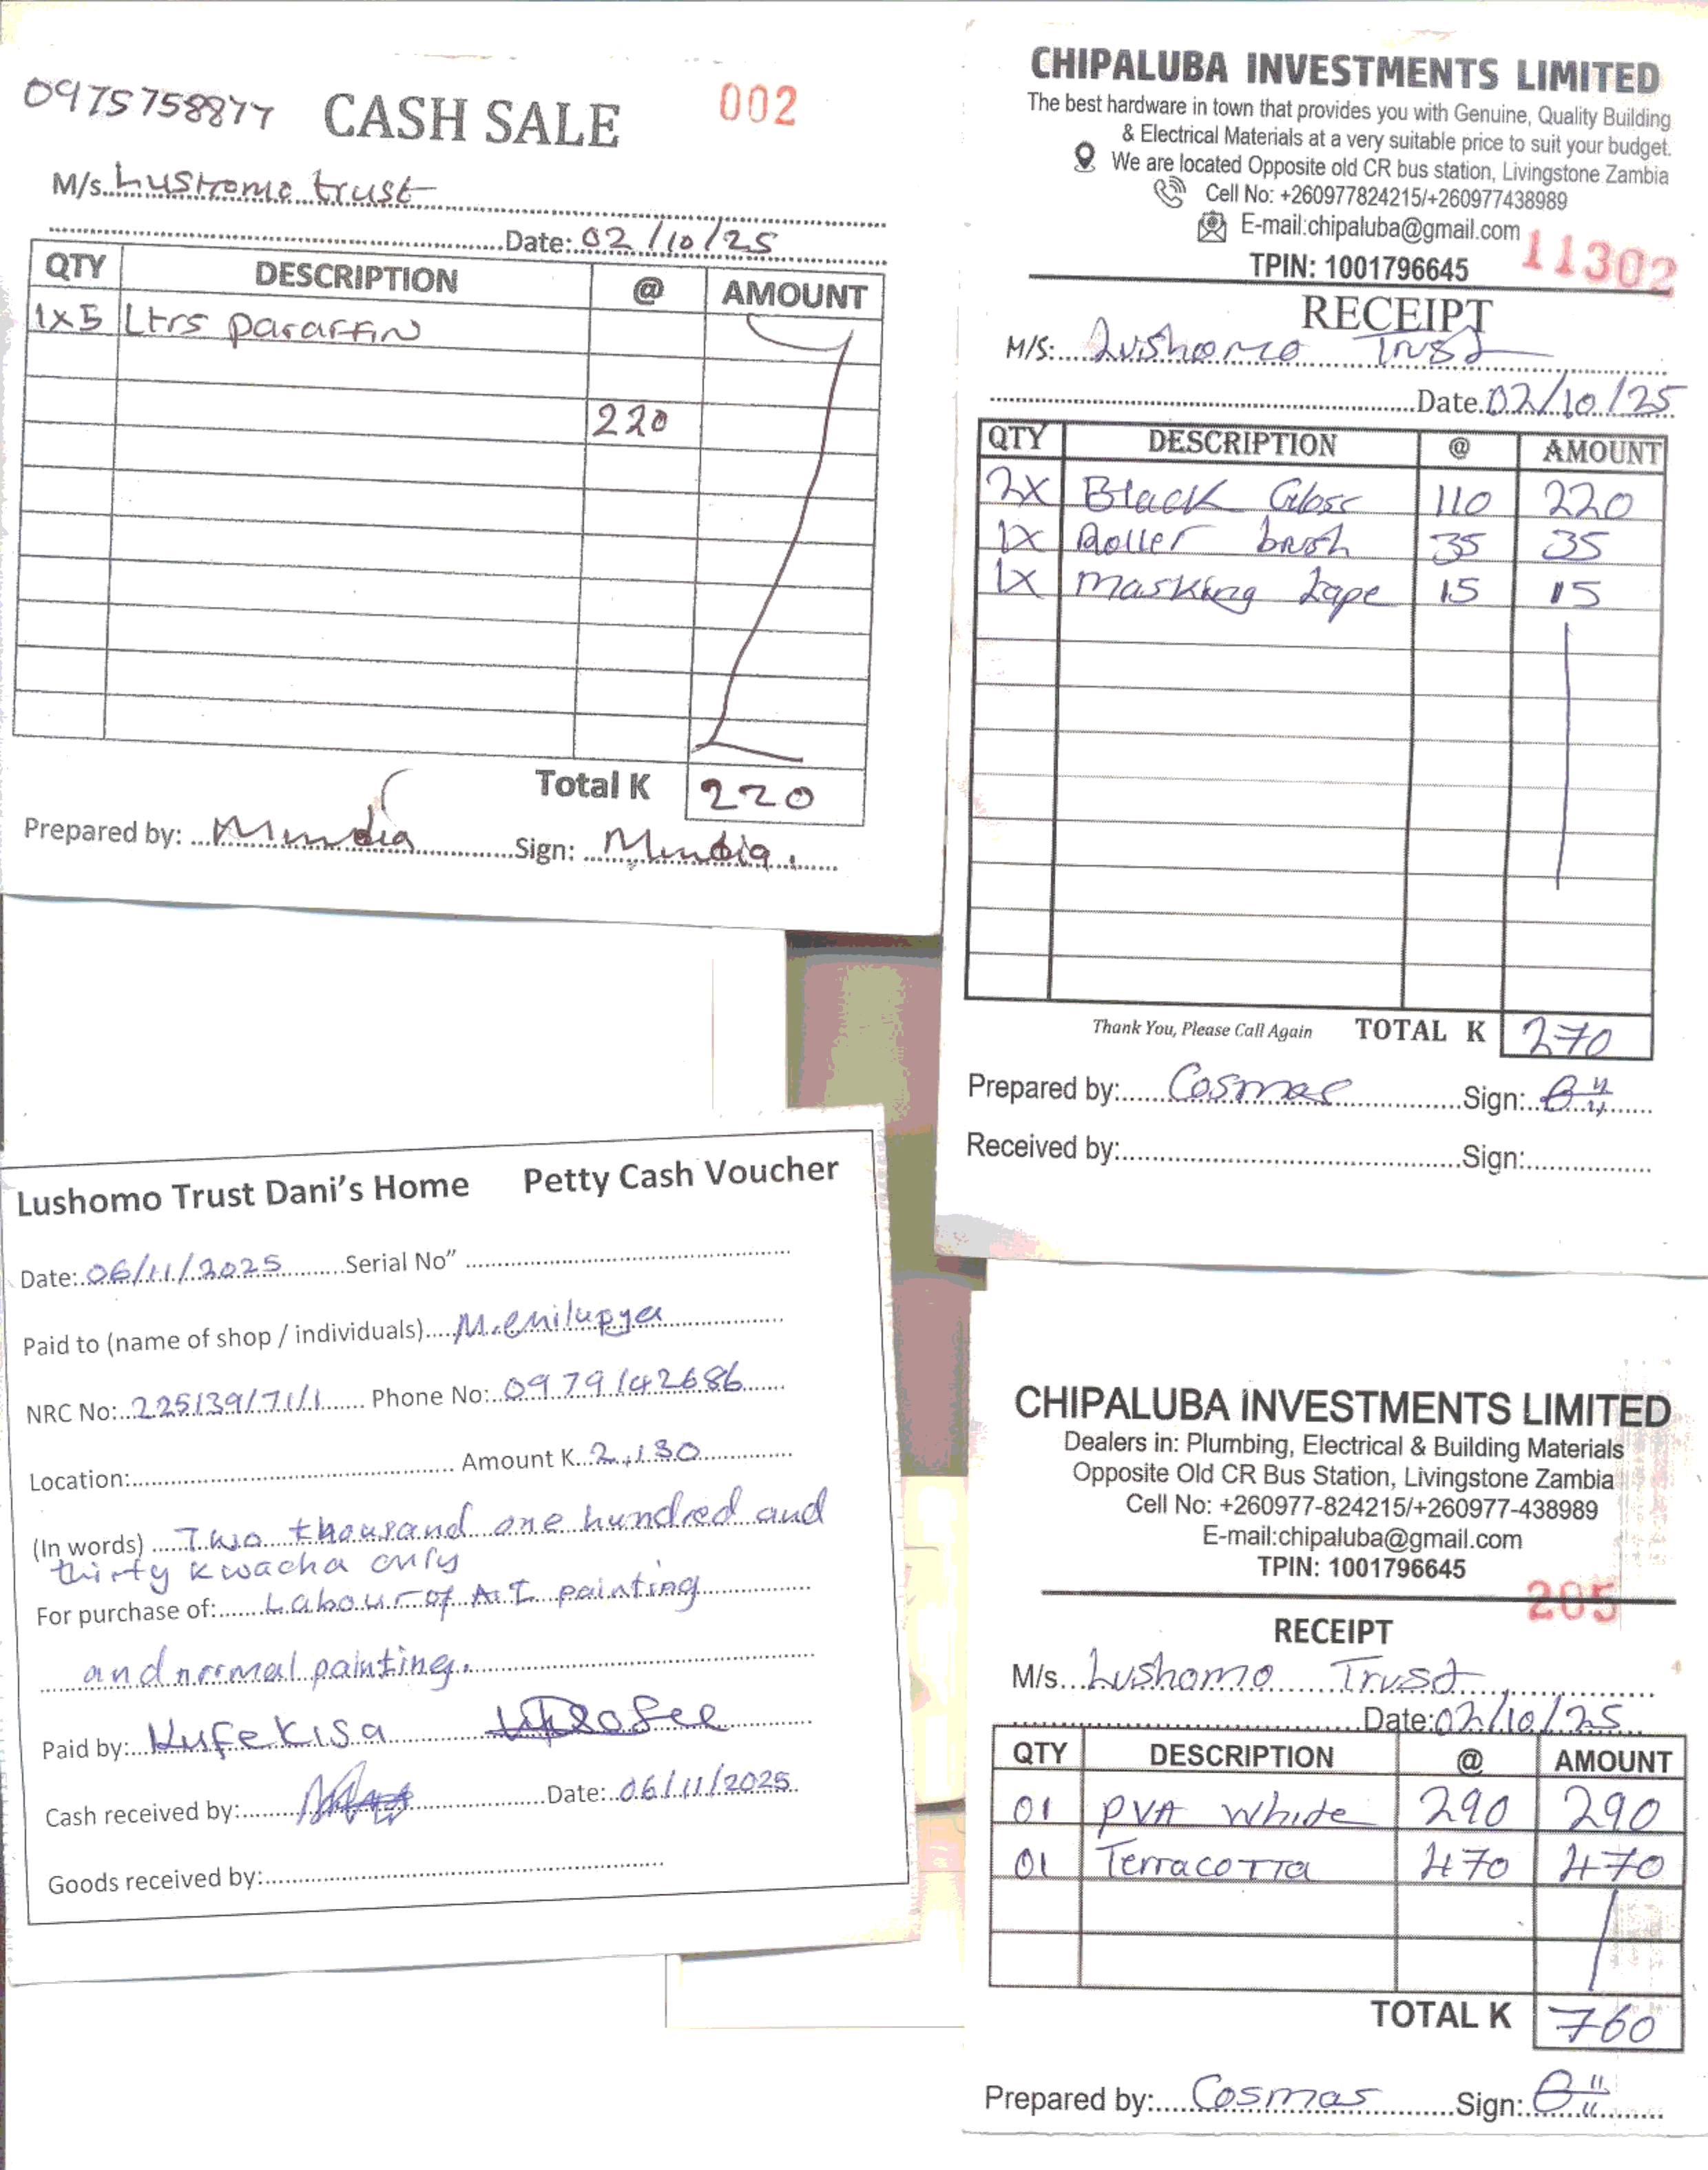 0975758877 CASH SALE 002
M/s. Lushomo trust
Date: 02/10/25
QTY DESCRIPTION @ AMOUNT
1x5 Ltrs paraffin
220
Total K 220
Prepared by: Mundia Sign: Mundia.
CHIPALUBA INVESTMENTS LIMITED
The best hardware in town that provides you with Genuine, Quality Building
& Electrical Materials at a very suitable price to suit your budget.
We are located Opposite old CR bus station, Livingstone Zambia
Cell No: +260977824215/+260977438989
E-mail:chipaluba@gmail.com
TPIN: 1001796645 11302
RECEIPT
M/S: Lushomo Trust
Date. 02/10/25
QTY DESCRIPTION @ AMOUNT
2x Black Gloss 110 220
1x Roller brush 35 35
1x masking tape 15 15
Thank You, Please Call Again TOTAL K 270
Prepared by: Cosmas Sign:
Received by: Sign:
Lushomo Trust Dani's Home Petty Cash Voucher
Date: 06/11/2025 Serial No"
Paid to (name of shop / individuals)
NRC No: 225139/71/1 Phone No: 0979142686
Location: Amount K 2,130
(In words) Two thousand one hundred and
thirty kwacha only
For purchase of: Labour of Art painting
and normal painting.
Paid by: Kufekisa
Cash received by: Date: 06/11/2025
Goods received by:
CHIPALUBA INVESTMENTS LIMITED
Dealers in: Plumbing, Electrical & Building Materials
Opposite Old CR Bus Station, Livingstone Zambia
Cell No: +260977-824215/+260977-438989
E-mail:chipaluba@gmail.com
TPIN: 1001796645
205
RECEIPT
M/s Lushomo Trust
Date: 02/10/25
QTY DESCRIPTION @ AMOUNT
01 PVA white 290 290
01 Terracotta 470 470
TOTAL K 760
Prepared by: Cosmas Sign: